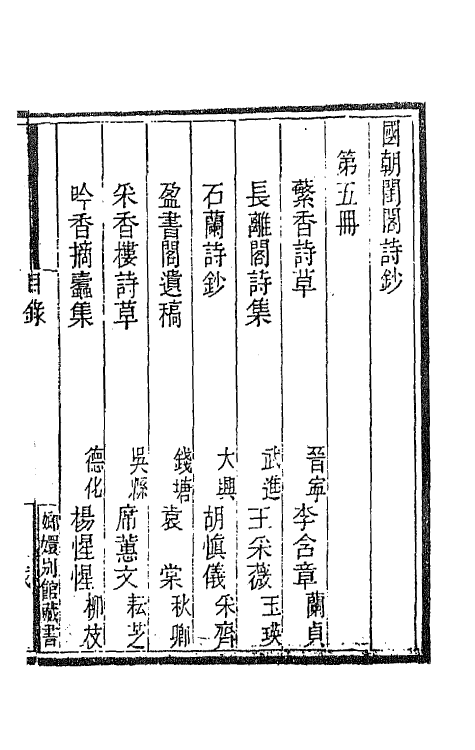 國朝閨閣詩鈔
第五冊
蘩香詩草 晉寧李含章蘭貞
長離閣詩集 武進王采薇玉瑛
石蘭詩鈔 大興胡愼儀采齊
盈書閣遺稿 錢塘袁棠秋卿
采香樓詩草 吳縣席蕙文耘芝
吟香摘蠹集 德化楊惺惺柳枝
目錄
嫏嬛別館藏書